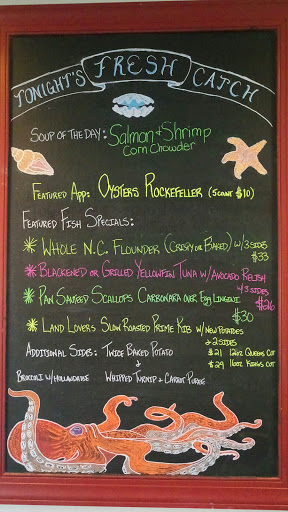 TONIGHT'S FRESH CATCH
SOUP OF THE DAY: Salmon + Shrimp
Corn Chowder
FEATURED APP: OYSTERS ROCKEFELLER (5 COUNT $10)
FEATURED FISH SPECIALS:
* WHOLE N.C. FLOUNDER (CRISPY OR BAKED) W/ 3 SIDES
$33
* BLACKENED OR GRILLED YELLOWFIN TUNA W/ AVOCADO RELISH
W/ 3 SIDES
$26
* PAN SAUTEED SCALLOPS CARBONARA OVER EGG LINGUINI
$30
* LAND LOVER'S SLOW ROASTED PRIME RIB W/ NEW POTATOES
+ 2 SIDES
ADDITIONAL SIDES: TWICE BAKED POTATO
$21 12OZ QUEENS CUT
+
$29 16OZ KINGS CUT
BROCCOLI W/ HOLLANDAISE WHIPPED TURNIP + CARROT PUREE